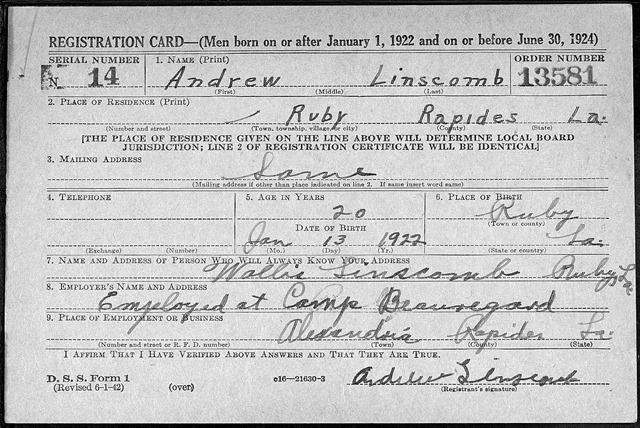 REGISTRATION CARD—(Men born on or after January 1, 1922 and on or before June 30, 1924)
SERIAL NUMBER 1. NAME (Print) ORDER NUMBER
N 14 Andrew Linscomb 13581
(First) (Middle) (Last)
2. PLACE OF RESIDENCE (Print)
Ruby Rapides La.
(Number and street) (Town, township, village, or city) (County) (State)
[THE PLACE OF RESIDENCE GIVEN ON THE LINE ABOVE WILL DETERMINE LOCAL BOARD
JURISDICTION; LINE 2 OF REGISTRATION CERTIFICATE WILL BE IDENTICAL]
3. MAILING ADDRESS
Same
(Mailing address if other than place indicated on line 2. If same insert word same)
4. TELEPHONE 5. AGE IN YEARS 6. PLACE OF BIRTH
20 Ruby
DATE OF BIRTH (Town or county)
Jan 13 1922 La.
(Exchange) (Number) (Mo.) (Day) (Yr.) (State or country)
7. NAME AND ADDRESS OF PERSON WHO WILL ALWAYS KNOW YOUR ADDRESS
Wallis Linscomb Ruby La.
8. EMPLOYER'S NAME AND ADDRESS
Employed at Camp Beauregard
9. PLACE OF EMPLOYMENT OR BUSINESS
Alexandria Rapides La.
(Number and street or R. F. D. number) (Town) (County) (State)
I AFFIRM THAT I HAVE VERIFIED ABOVE ANSWERS AND THAT THEY ARE TRUE.
D. S. S. Form 1
(Revised 6-1-42) (over) c16—21630-3 Andrew Linscomb
(Registrant's signature)